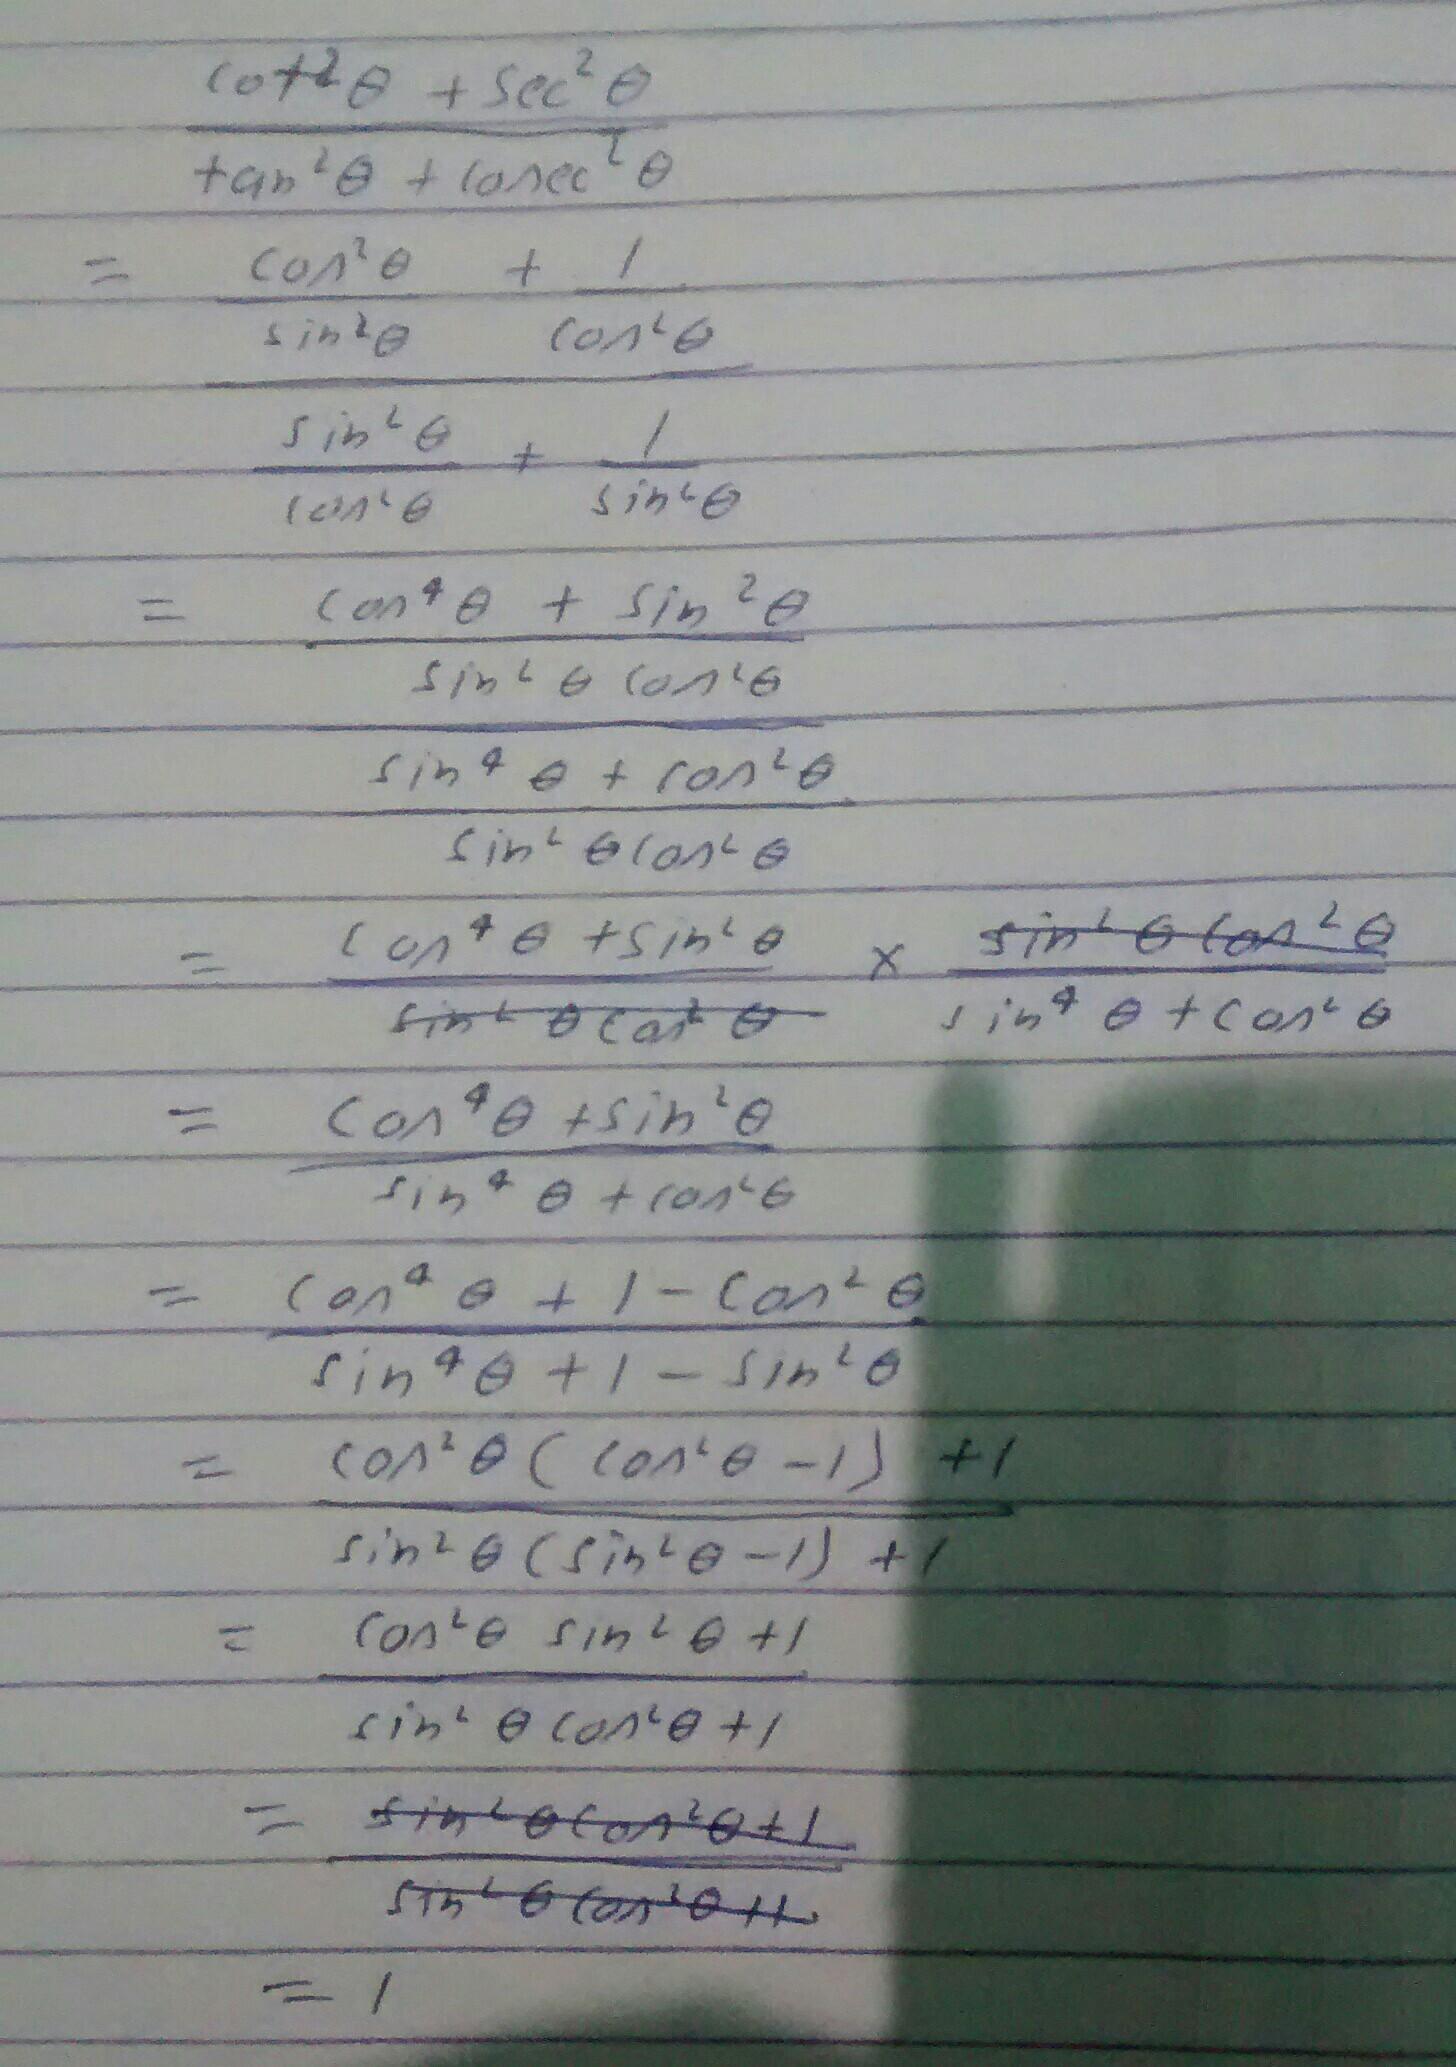 cot²θ + sec²θ
tan²θ + cosec²θ
= cos²θ + 1
sin²θ cos²θ
sin²θ + 1
cos²θ sin²θ
= cos⁴θ + sin²θ
sin²θ cos²θ
sin⁴θ + cos²θ
sin²θ cos²θ
= cos⁴θ + sin²θ × sin²θ cos²θ
sin²θ cos²θ sin⁴θ + cos²θ
= cos⁴θ + sin²θ
sin⁴θ + cos²θ
= cos⁴θ + 1 - cos²θ
sin⁴θ + 1 - sin²θ
= cos²θ (cos²θ - 1) + 1
sin²θ (sin²θ - 1) + 1
= cos²θ sin²θ + 1
sin²θ cos²θ + 1
= sin²θ cos²θ + 1
sin²θ cos²θ + 1
= 1